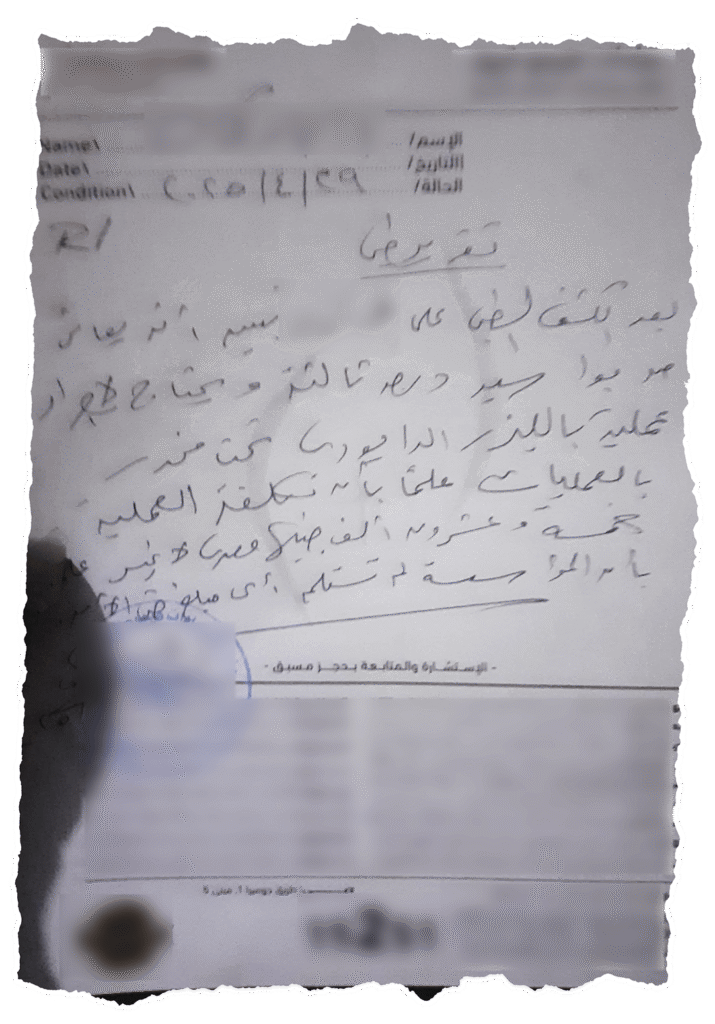 Name\ الإسم/
Date\ التاريخ/
Condition\ ٢٠٢٥/٤/٢٩ الحالة/
R/
تقرير طبى
بعد الكشف الطبى على تبين أنه يعانى
من بواسير درجة ثالثة ويحتاج لإجراء
عملية بالليزر الدايود تحت مخدر
بالعمليات علماً بأن تكلفة العملية
خمسة وعشرون ألف جنيهاً مصرياً لا غير
بأن المؤسسة لم تستلم أى مبلغ حتى الآن
- الإستشارة والمتابعة بحجز مسبق -